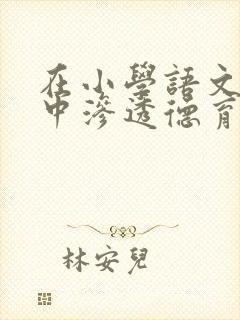 在小學語文
中滲透德育
林安兒